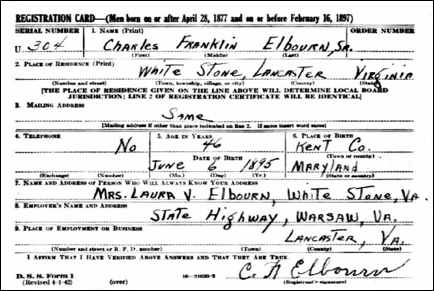 REGISTRATION CARD—(Men born on or after April 28, 1877 and on or before February 16, 1897)
SERIAL NUMBER 1. NAME (Print) ORDER NUMBER
U 304 Charles Franklin Elbourn, Sr.
(First) (Middle) (Last)
2. PLACE OF RESIDENCE (Print)
White Stone, Lancaster Virginia
(Number and street) (Town, township, village, or city) (County) (State)
[THE PLACE OF RESIDENCE GIVEN ON THE LINE ABOVE WILL DETERMINE LOCAL BOARD
JURISDICTION; LINE 2 OF REGISTRATION CERTIFICATE WILL BE IDENTICAL]
3. MAILING ADDRESS
Same
[Mailing address if other than place indicated on line 2. If same insert word same]
4. TELEPHONE 5. AGE IN YEARS 6. PLACE OF BIRTH
No 46 Kent Co.
DATE OF BIRTH (Town or county)
June 6 1895 Maryland
(Exchange) (Number) (Mo.) (Day) (Yr.) (State or country)
7. NAME AND ADDRESS OF PERSON WHO WILL ALWAYS KNOW YOUR ADDRESS
Mrs. Laura V. Elbourn, White Stone, Va.
8. EMPLOYER'S NAME AND ADDRESS
State Highway, Warsaw, Va.
9. PLACE OF EMPLOYMENT OR BUSINESS
Lancaster, Va.
(Number and street or R. F. D. number) (Town) (County) (State)
I AFFIRM THAT I HAVE VERIFIED ABOVE ANSWERS AND THAT THEY ARE TRUE.
D. S. S. Form 1 C. F. Elbourn
(Revised 4-1-42) (over) (Registrant's signature)